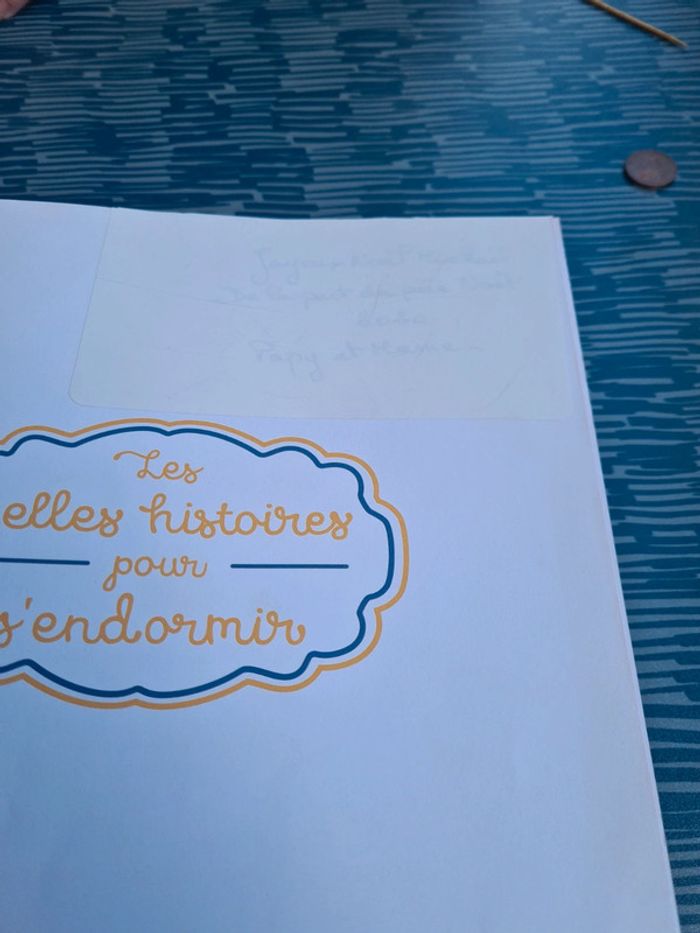 Joyeux Noël
De la part du père Noël
Papy et Mamie
Les
elles histoires
pour
s'endormir